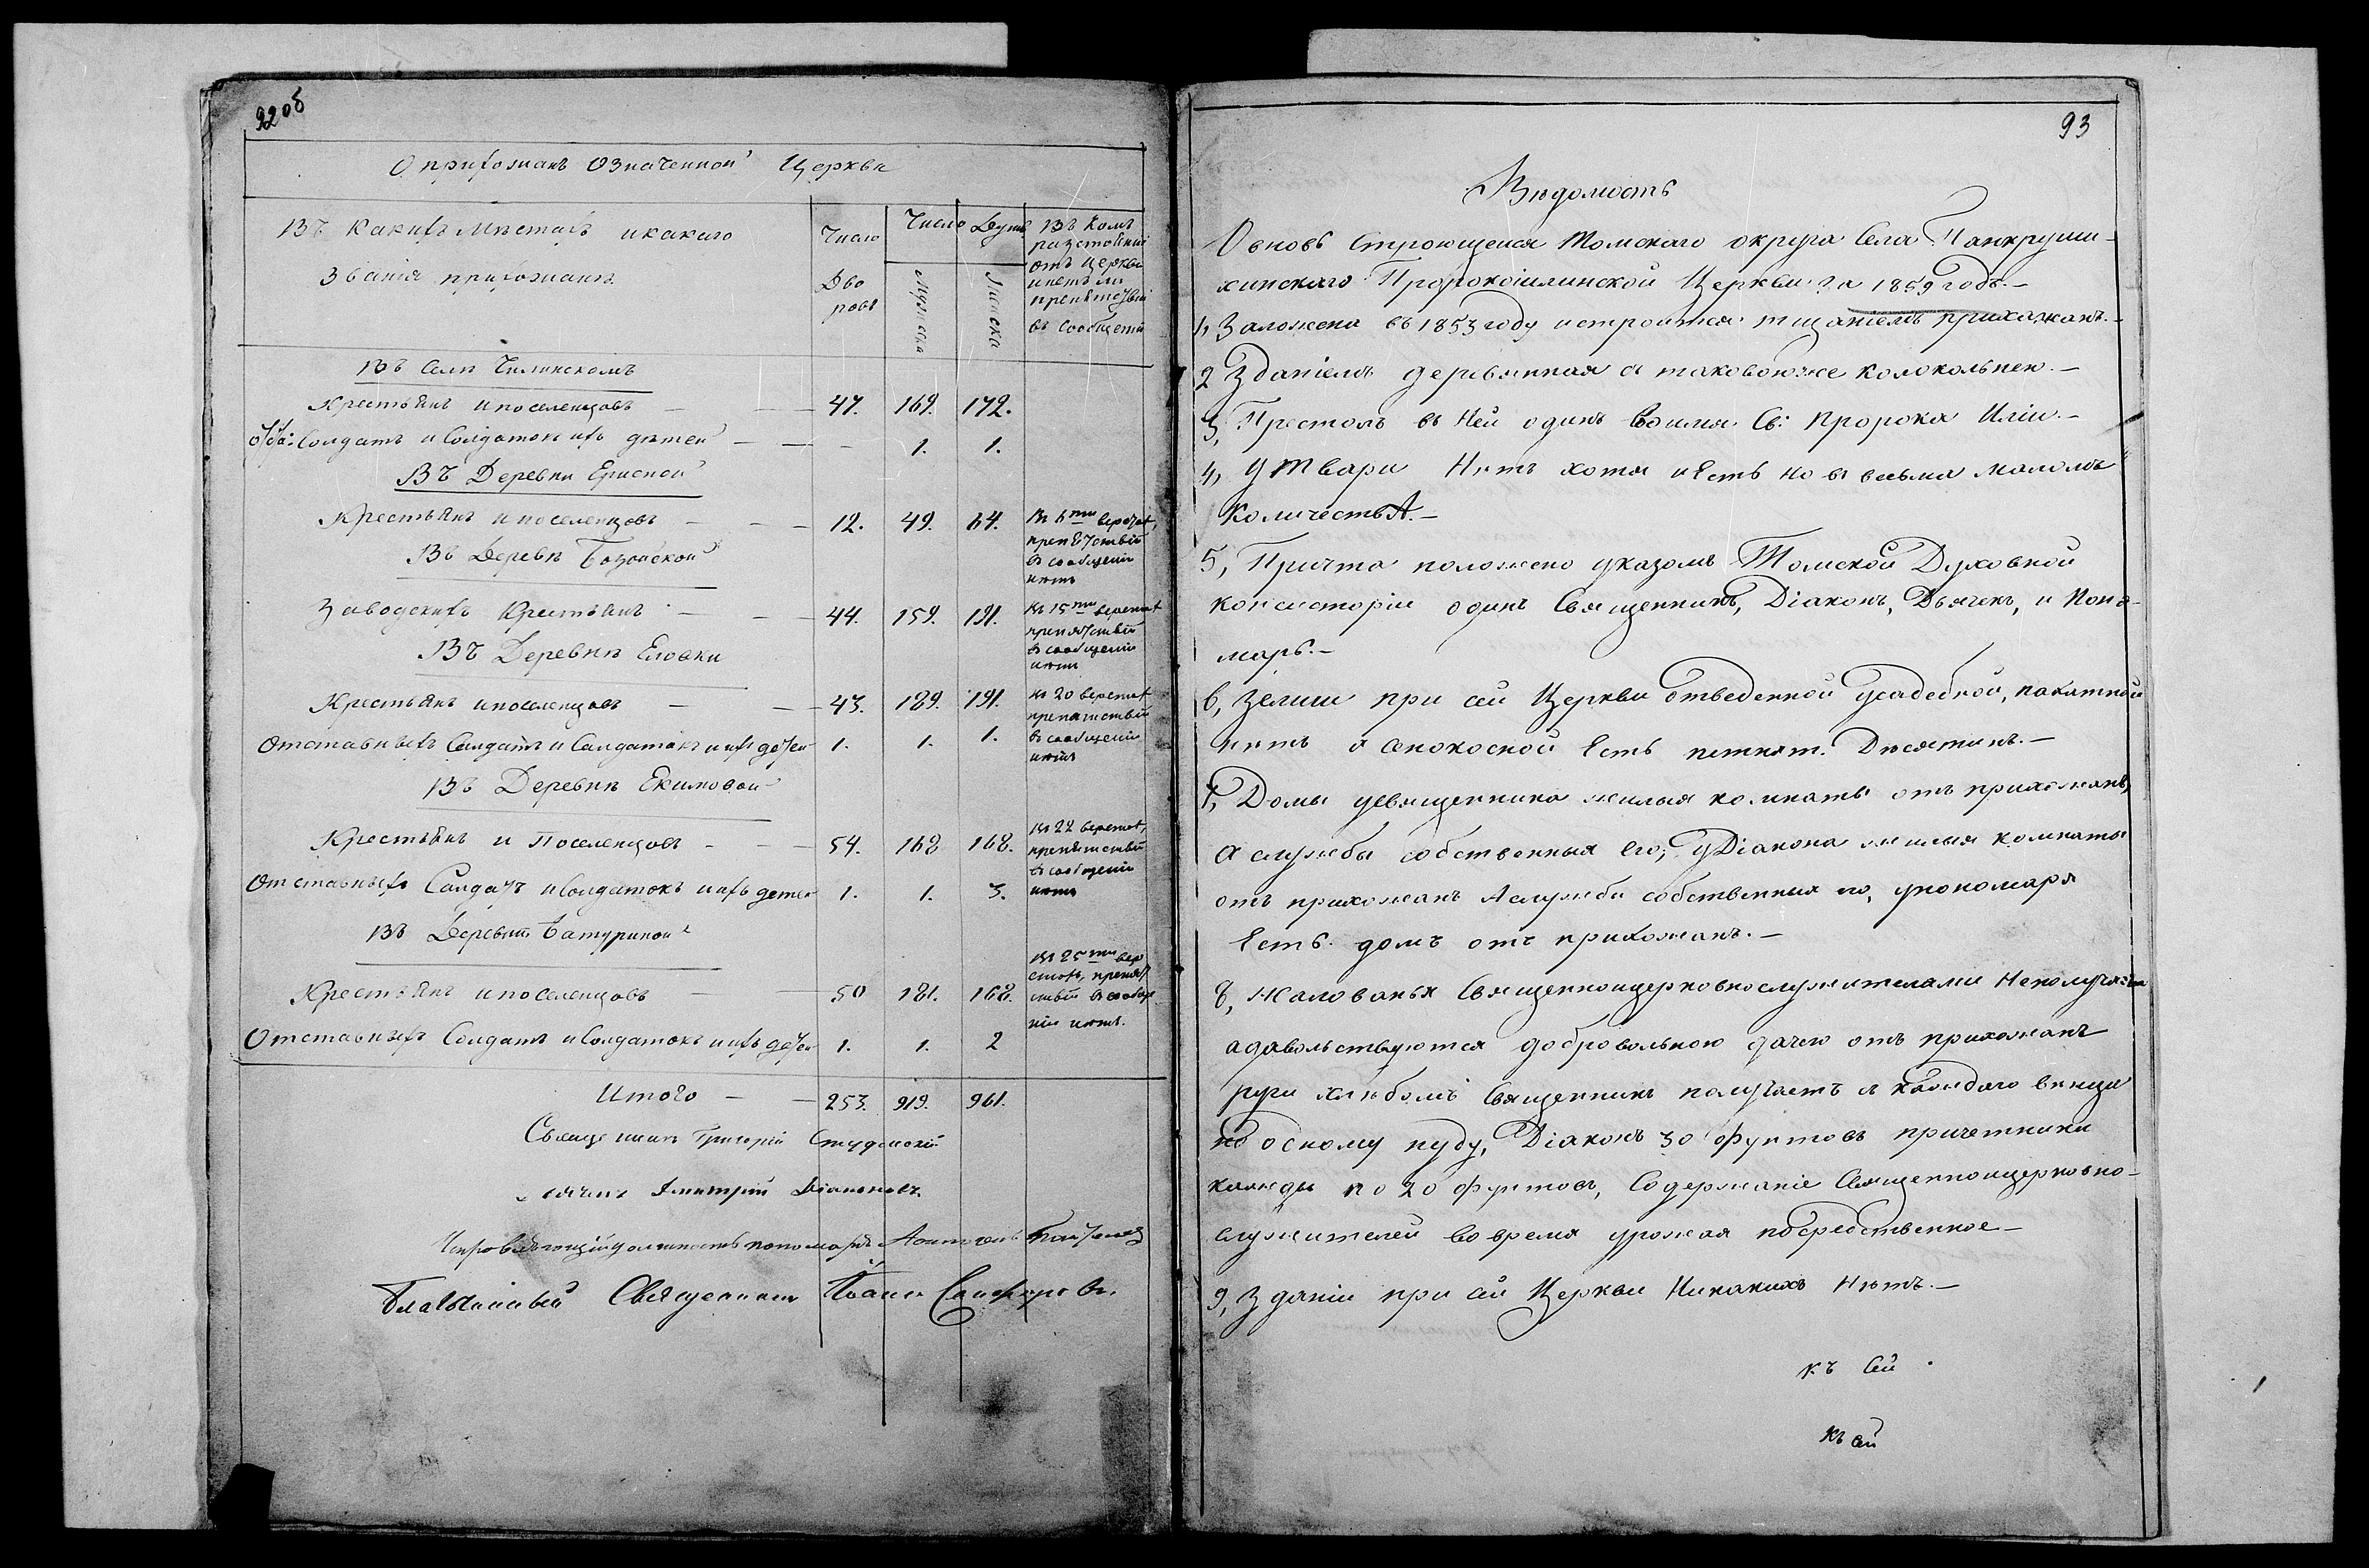 92об
О прихожанъ Означенной Церкви
ВЪ Какихъ Мѣстахъ и какаго
Званія прихожанъ.
Число
Дво
ровъ
Число Душъ
Мужеска
Женска
ВЪ Комъ
разстояніи
отъ Церкви
и нетъ ли
препятствій
въ сообщеніи
Въ Селѣ Чилинскомъ
Крестьянъ и поселенцовъ — — 47. 169. 172.
Солдатъ и Солдатокъ ихъ дѣтей — — — 1. 1.
ВЪ Деревни Ериской
Крестьянъ и поселенцовъ — — 12. 49. 64.
Въ 6ти верстахъ,
препятствій
въ сообщеніи
нѣтъ
Въ Деревнѣ
Заводскихъ Крестьянъ — — 44. 159. 191.
Въ 15ти верстахъ
препятствій
въ сообщеніи
нѣтъ
ВЪ Деревнѣ Еловки
Крестьянъ и поселенцовъ — — 43. 189. 191.
въ 20 верстахъ
препятствій
въ сообщеніи
нѣтъ
Отставныхъ Солдатъ и Солдатокъ и ихъ детей 1. 1. 1.
ВЪ Деревнѣ Екимовой
Крестьянъ и Поселенцовъ — — 54. 168 168.
въ 22 верстах,
препятствій
въ сообщеніи
нѣтъ
Отставныхъ Солдатъ и Солдатокъ и ихъ детей 1. 1. 3.
ВЪ Деревнѣ Батуриной
Крестьянъ и поселенцовъ — — 50 181. 168.
въ 25ти вер
стахъ, препят
ствій въ сообще
ніи нѣтъ.
Отставныхъ Солдатъ и Солдатокъ и ихъ детей 1. 1. 2
Итого — — 253. 919. 961.
Священникъ Григорій Студенскій
Дмитрій Діаконовъ.
Исправляющій должность пономаря
Благочинный Священникъ Іоаннъ
93
Вѣдомость
О вновь Строющейся Томскаго округа Села Панкруши-
хинскаго Пророкоилинской Церкви за 1859 годъ.—
1, Заложена въ 1853 году и строится тщаніемъ прихожанъ.—
2 Зданіемъ деревянная с таковоюже колокольнею.—
3, Престолъ въ Ней одинъ Воимя Св: Пророка Иліи.—
4, Утвари Нѣтъ хотя и Есть но въ весьма маломъ
КоличествѢ.—
5, Причта положено указомъ Томской Духовной
консисторіи одинъ Священникъ, Діаконъ, Дьячекъ, и Поно-
марь.—
6, Земли при сей Церкви Отведенной усадебной, пахатной
нѣтъ а сенокосной Есть Десятинъ.—
7, Домы усвященника жилыя комнаты отъ прихожанъ,
а службы собственныя его; у Діакона жилыя комнаты
отъ прихожанъ А службы собственныя его, упономаря
Есть домъ отъ прихожанъ.—
8, Жалованья Священноцерковнослужителями Неполучается
адавольствуются добровольною дачею отъ прихожанъ
руги хлѣбомъ Священникъ получаетъ съ каждаго венца
по осному пуду, Діаконъ 30 фунтовъ причетники
каждый по 20 фунтовъ, Содержаніе Священноицерковно-
служителей во время урожая посредственное—
9, Зданій при сей Церкви Никакихъ Нѣтъ.—
къ Сей
къ сей